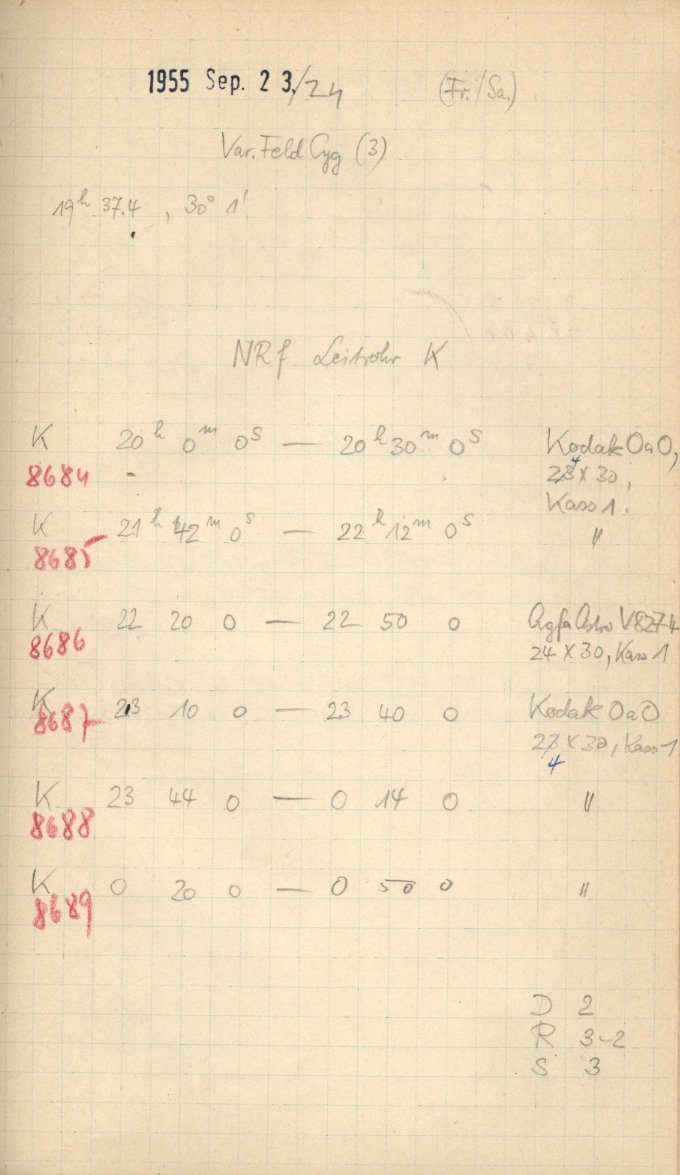 1955 Sep. 23./24 (Fr./Sa.)
Var. Feld Cyg (3)
19h 37.4, 30° 1'
NRf Leitrohr K
K 20h 0m 0s — 20h 30m 0s Kodak OaO,
8684 24 x 30,
Kass 1.
K 21h 42m 0s — 22h 12m 0s "
8685
K 22 20 0 — 22 50 0 Agfa Astro V8274
8686 24 x 30, Kass 1
K 23 10 0 — 23 40 0 Kodak OaO
8687 23 x 30, Kass 1
4
K 23 44 0 — 0 14 0 "
8688
K 0 20 0 — 0 50 0 "
8689
D 2
R 3-2
S 3